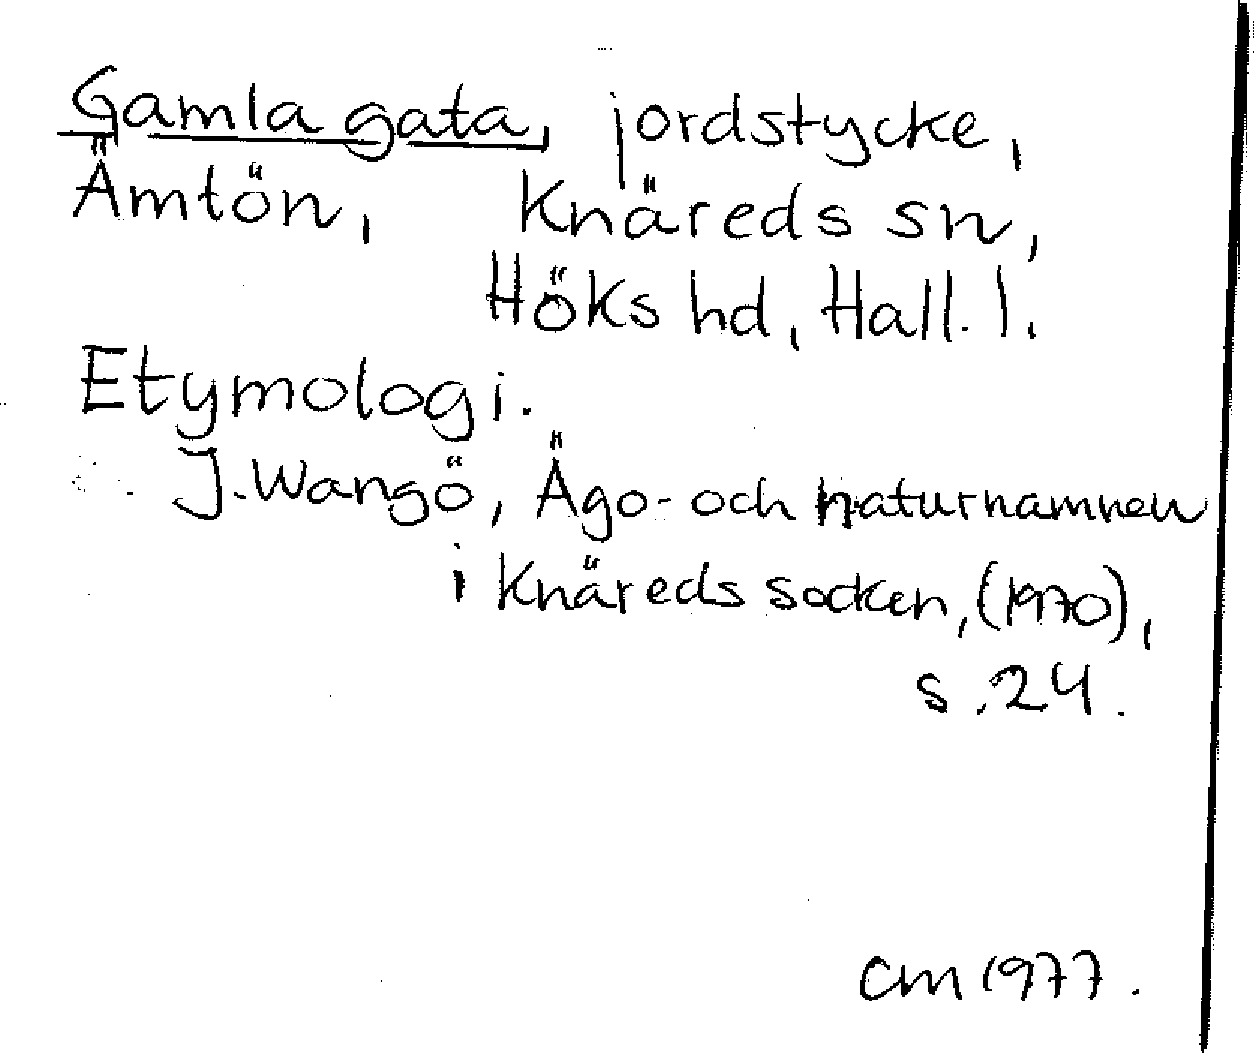 Gamla gata, jordstycke,
Ämtön, Knäreds sn,
Höks hd, Hall. l.
Etymologi.
J. Wangö, Ägo- och naturnamnen
i Knäreds socken, (1970),
s. 24.
CM 1977.